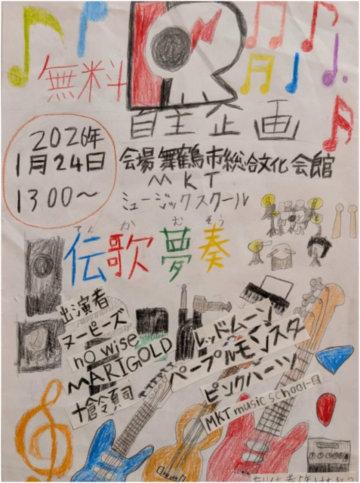 無料
R
自主企画
2026年
1月24日
13:00～
会場 舞鶴市総合文化会館
MKT
ミュージックスクール
でん か む そう
伝歌夢奏
出演者
ヌーピーズ
no wise
MARIGOLD
レッドムーン
ペープルモンスター
ピンクハーツ
MKT music school一同